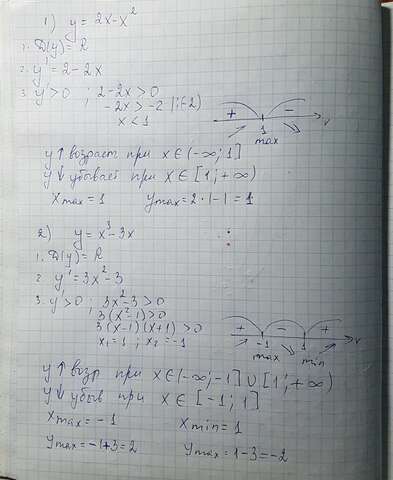 1) y = 2x-x²
1. D(y)= R
2. y' = 2-2x
3. y'>0 ; 2-2x>0
-2x>-2 |:(-2)
x<1
+ -
1 x
max
y↑ возраст при x∈(-∞; 1]
y↓ убывает при x∈[1; +∞)
Xmax = 1 Ymax = 2·1-1 = 1
2) y = x³-3x
1. D(y)= R
2. y' = 3x²-3
3. y'>0 ; 3x²-3>0
3(x²-1)>0
3(x-1)(x+1)>0
x₁=1 ; x₂=-1
+ - +
-1 1 x
max min
y↑ возр при x∈(-∞;-1] ∪ [1; +∞)
y↓ убыв при x∈[-1; 1]
Xmax = -1 Xmin = 1
Ymax = -1+3=2 Ymax = 1-3=-2